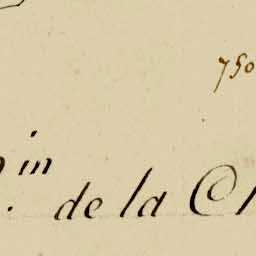 750
in
de la